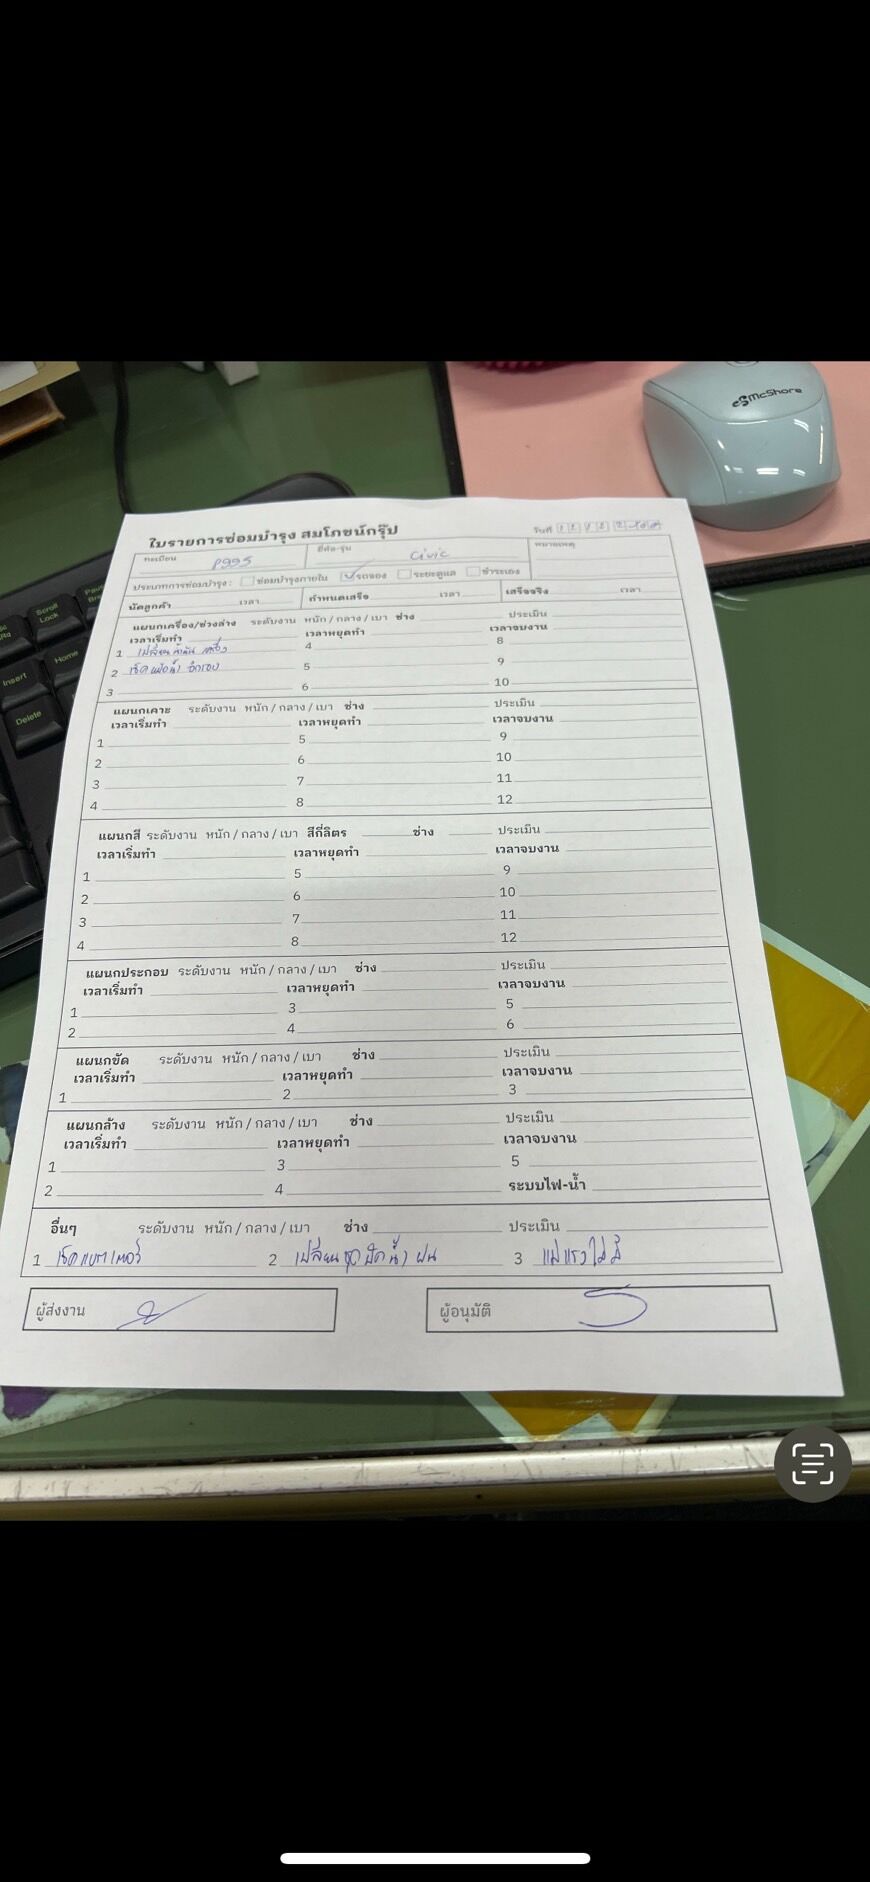 McShore
Scroll
Lock
Insert
Home
Delete
ใบรายการซ่อมบำรุง สมโภชน์กรุ๊ป
วันที่
ทะเบียน P995 ยี่ห้อ-รุ่น Civic หมายเหตุ
ประเภทการซ่อมบำรุง : ซ่อมบำรุงภายใน รถจอง ระยะดูแล ชำระเอง
นัดลูกค้า เวลา กำหนดเสร็จ เวลา เสร็จจริง เวลา
แผนกเครื่อง/ช่วงล่าง ระดับงาน หนัก / กลาง / เบา ช่าง ประเมิน
เวลาเริ่มทำ เวลาหยุดทำ เวลาจบงาน
1 เปลี่ยน เครื่อง 4 8
2 เช็ค 5 9
3 6 10
แผนกเคาะ ระดับงาน หนัก / กลาง / เบา ช่าง ประเมิน
เวลาเริ่มทำ เวลาหยุดทำ เวลาจบงาน
1 5 9
2 6 10
3 7 11
4 8 12
แผนกสี ระดับงาน หนัก / กลาง / เบา สีกี่ลิตร ช่าง ประเมิน
เวลาเริ่มทำ เวลาหยุดทำ เวลาจบงาน
1 5 9
2 6 10
3 7 11
4 8 12
แผนกประกอบ ระดับงาน หนัก / กลาง / เบา ช่าง ประเมิน
เวลาเริ่มทำ เวลาหยุดทำ เวลาจบงาน
1 3 5
2 4 6
แผนกขัด ระดับงาน หนัก / กลาง / เบา ช่าง ประเมิน
เวลาเริ่มทำ เวลาหยุดทำ เวลาจบงาน
1 2 3
แผนกล้าง ระดับงาน หนัก / กลาง / เบา ช่าง ประเมิน
เวลาเริ่มทำ เวลาหยุดทำ เวลาจบงาน
1 3 5
2 4 ระบบไฟ-น้ำ
อื่นๆ ระดับงาน หนัก / กลาง / เบา ช่าง ประเมิน
1 เช็คแบตเตอรี่ 2 เปลี่ยนชุดปัดน้ำฝน 3 แม่แรงไม่มี
ผู้ส่งงาน ผู้อนุมัติ